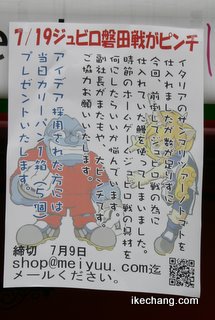 7/19ジュビロ磐田戦がピンチ
イタリアのサンマリノ、アーノトマトを
仕入れましたが数が足りず
今回、前倒してジュビロ戦の為に
仕入れていた鰻を使ってしまいました。
時節のホームジュビロ戦の具材を
何にしたらいいか悩んでいます。
副社長がまたもや、大ピンチです。
ご協力お願いいたします。
アイデア採用された方には
当日カリーパン1箱(5個)
プレゼントいたします。
締切 7月9日
shop@meiyuu.com迄
メールください。
ikechang.com